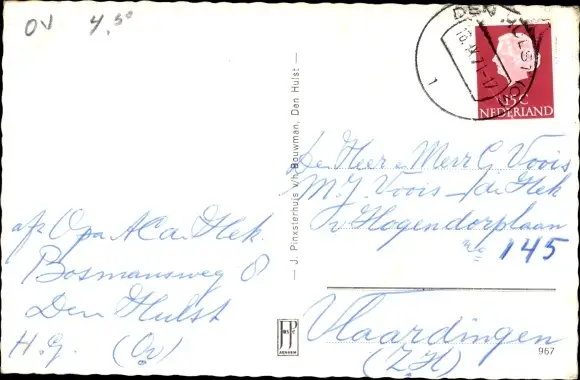 OV 4,50
DEN HULST (OV)
18.IX.71-17
1
15C
NEDERLAND
— J. Pinxsterhuis v/h Bouwman, Den Hulst —
Den Heer en Mevr G. Voois
M.J. Voois - de Hek
v Hogendorplaan
no 145
Vlaardingen
(Z.H)
afz Opa A C de Hek.
Bosmansweg 8
Den Hulst
H.G. (Ov)
JosPé
ARNHEM
967